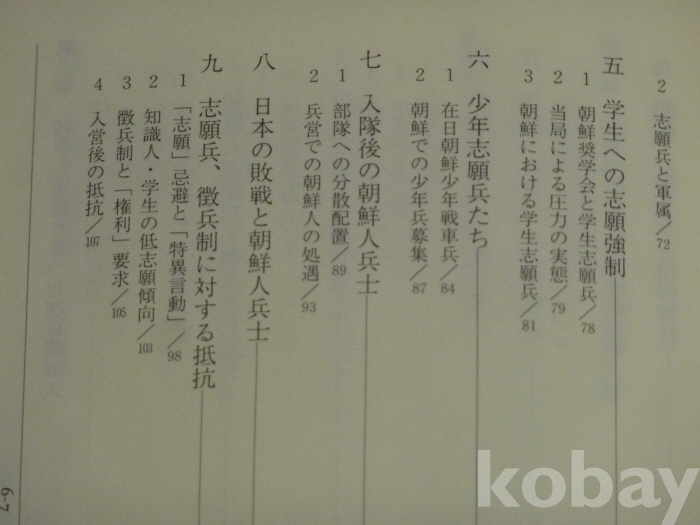 2 志願兵と軍属／72
五 学生への志願強制
1 朝鮮奨学会と学生志願兵／78
2 当局による圧力の実態／79
3 朝鮮における学生志願兵／81
六 少年志願兵たち
1 在日朝鮮少年戦車兵／84
2 朝鮮での少年兵募集／87
七 入隊後の朝鮮人兵士
1 部隊への分散配置／89
2 兵営での朝鮮人の処遇／93
八 日本の敗戦と朝鮮人兵士
九 志願兵、徴兵制に対する抵抗
1 「志願」忌避と「特異言動」／98
2 知識人・学生の低志願傾向／103
3 徴兵制と「権利」要求／105
4 入営後の抵抗／107
6-7
kobay